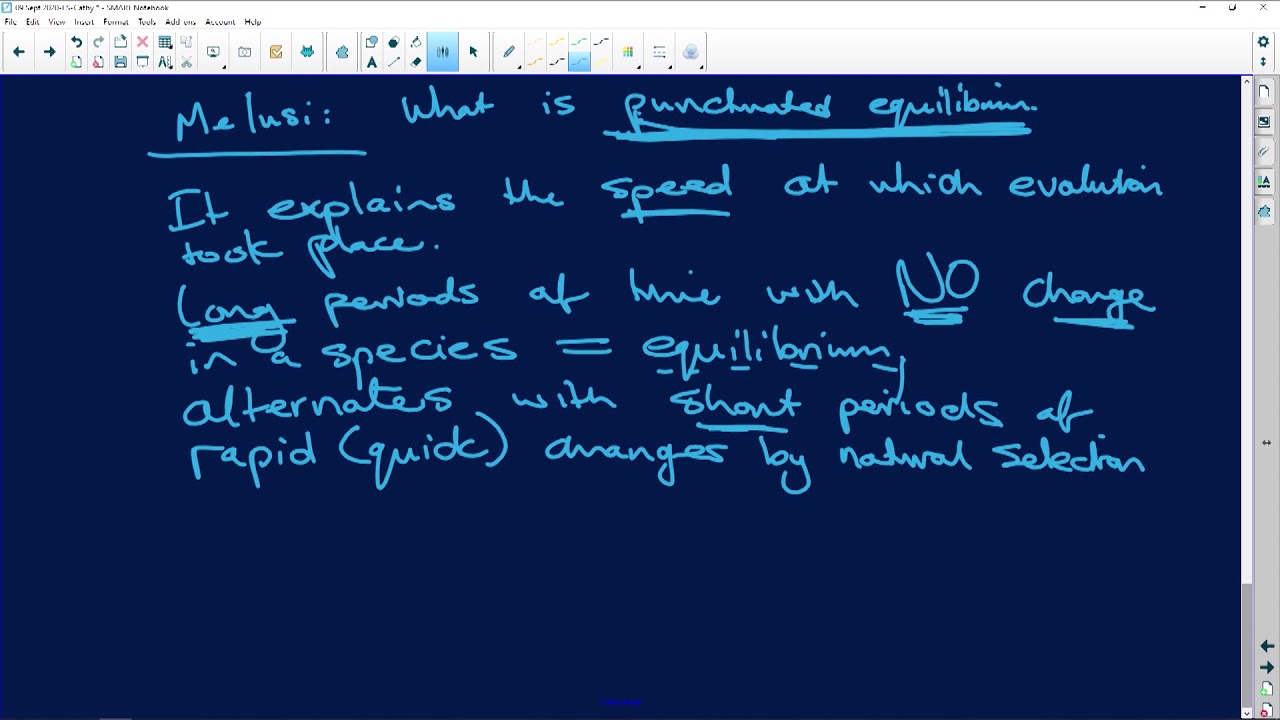 09 Sept 2020-LS-Cathy * - SMART Notebook
File Edit View Insert Format Tools Add-ons Account Help
Melusi: What is punctuated equilibrium.
It explains the speed at which evolution
took place.
Long periods of time with NO change
in a species = equilibrium,
alternates with short periods of
rapid (quick) changes by natural selection